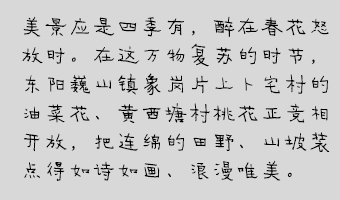 美景应是四季有，醉在春花怒
放时。在这万物复苏的时节，
东阳巍山镇象岗片上卜宅村的
油菜花、黄西塘村桃花正竞相
开放，把连绵的田野、山坡装
点得如诗如画、浪漫唯美。